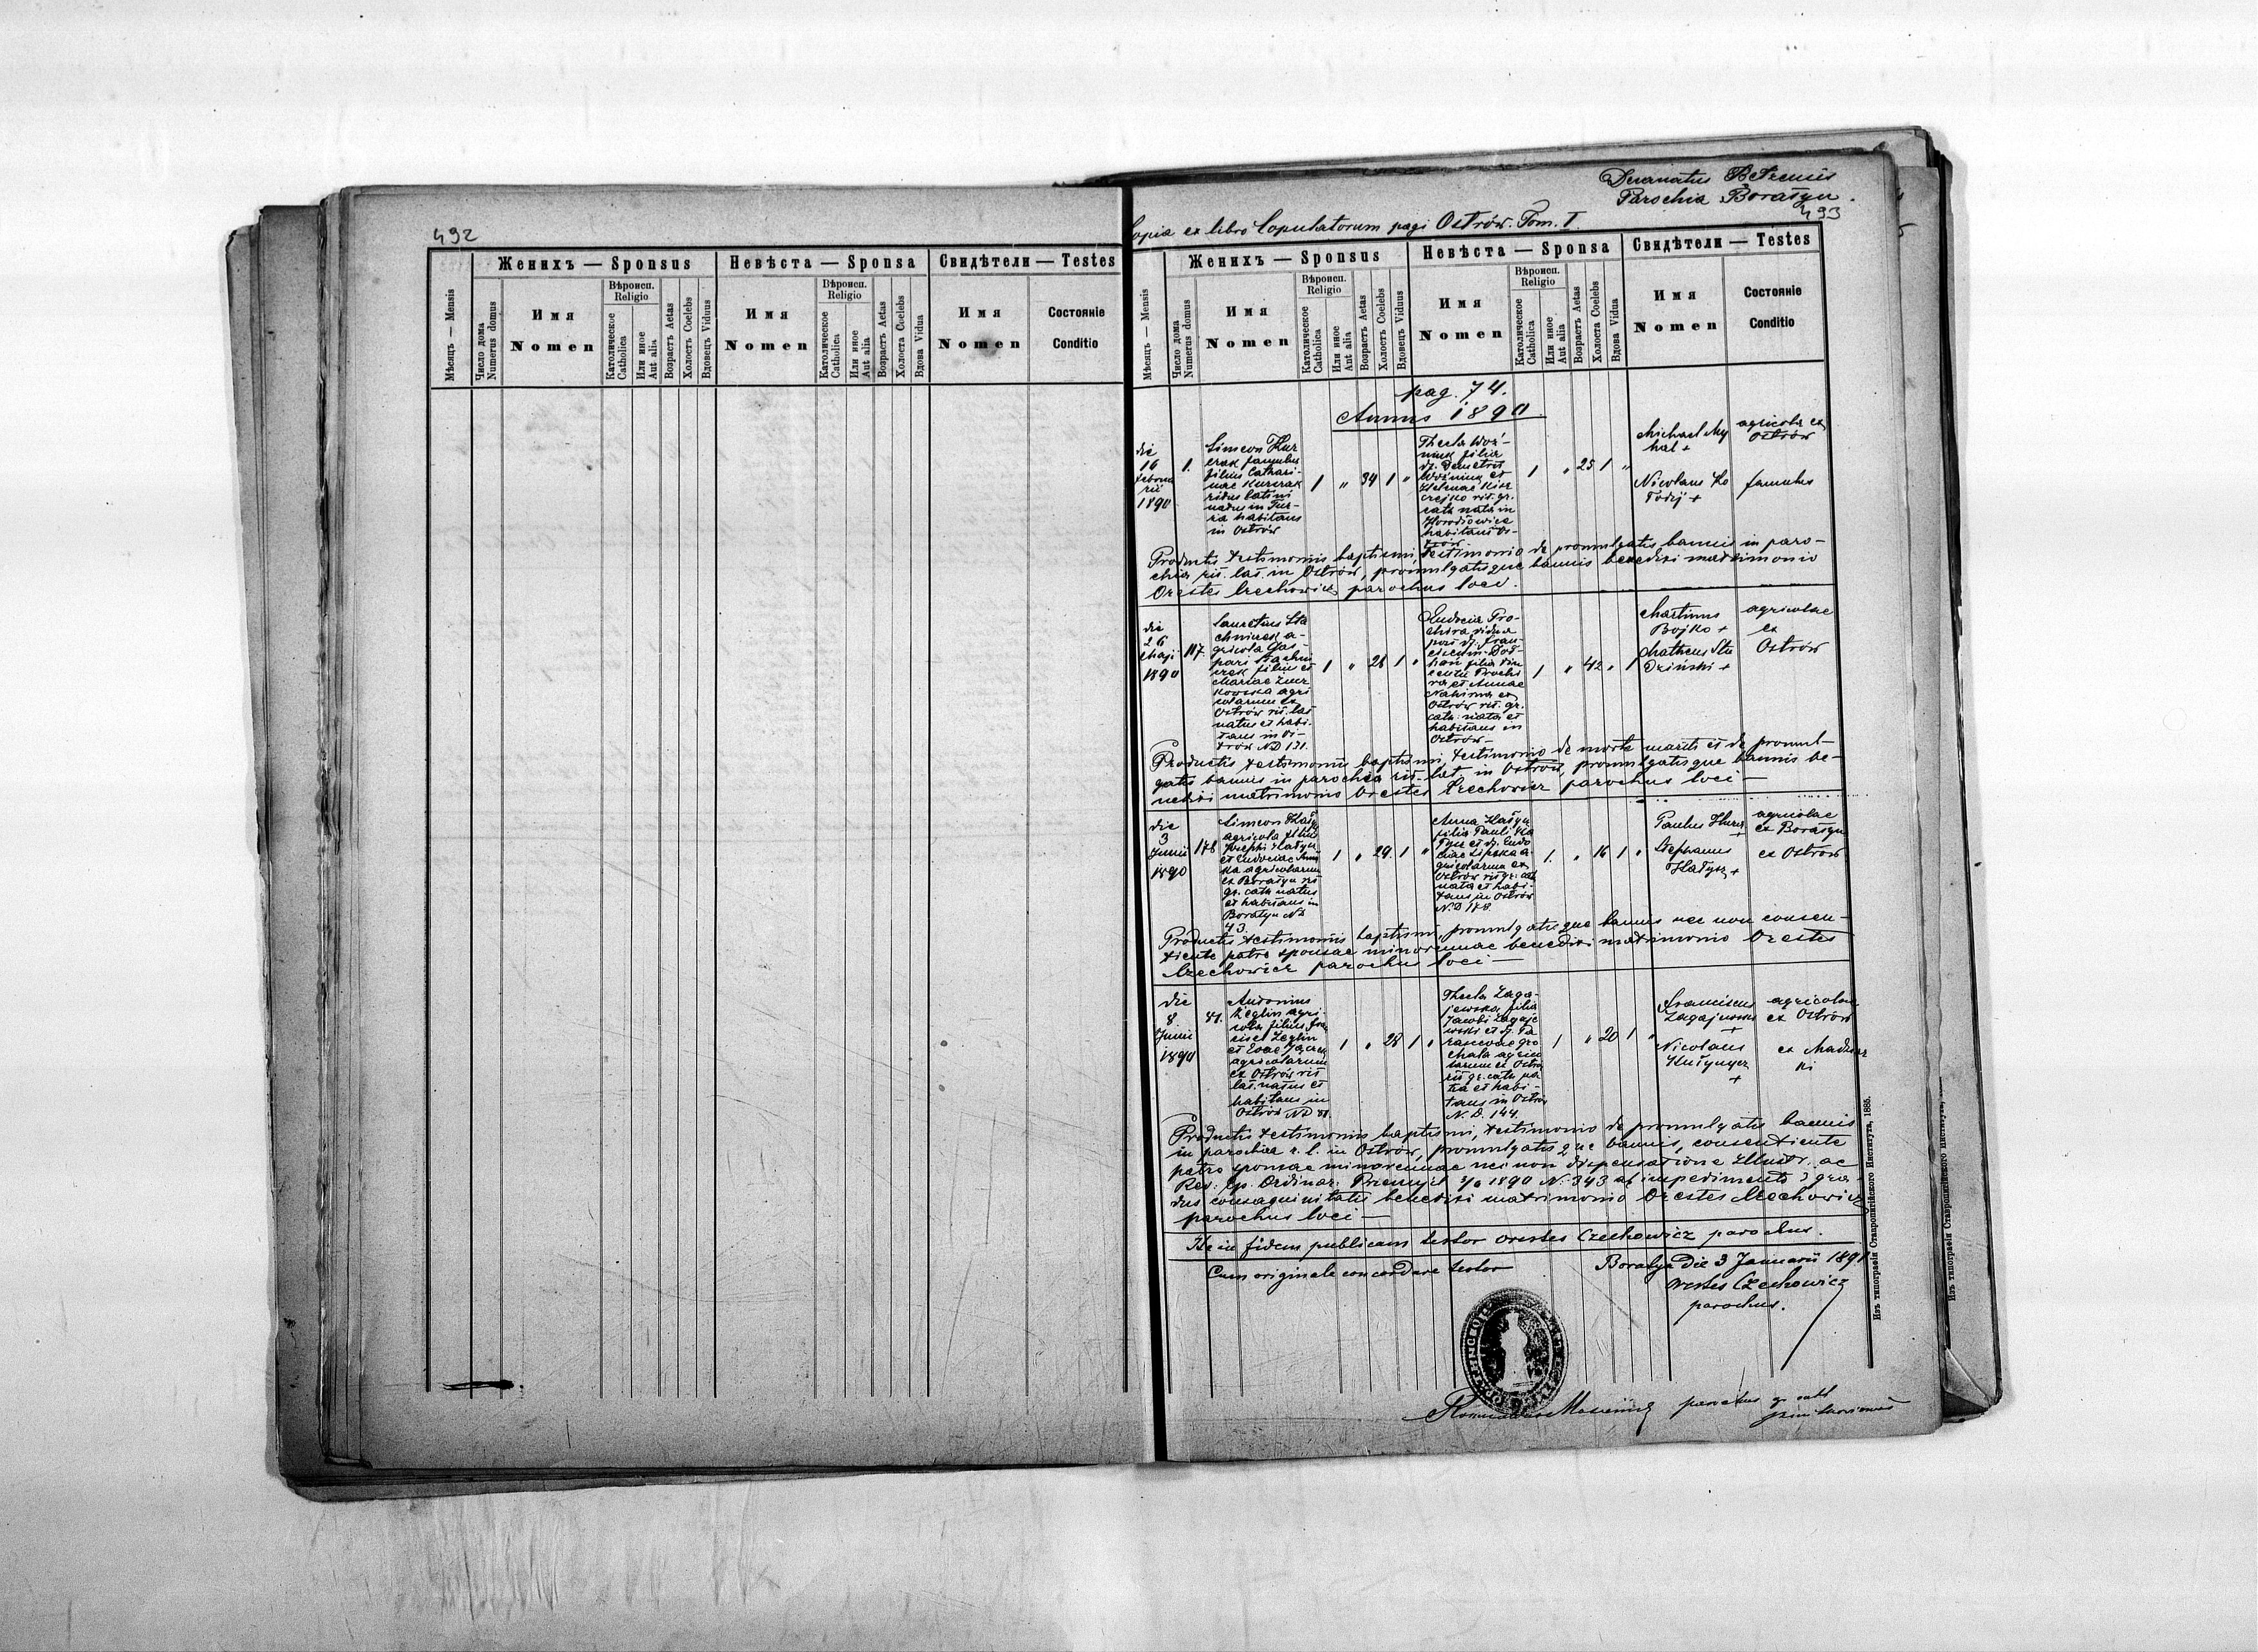 492
Женихъ — Sponsus
Невѣста — Sponsa
Свидѣтели — Testes
Мѣсяцъ — Mensis
Число дома
Numerus domus
Имя
Nomen
Вѣроисп.
Religio
Католическое
Catholica
Или иное
Aut alia
Возрастъ Aetas
Холостъ Coelebs
Вдовецъ Viduus
Имя
Nomen
Вѣроисп.
Religio
Католическое
Catholica
Или иное
Aut alia
Возрастъ Aetas
Холоста Coelebs
Вдова Vidua
Имя
Nomen
Состояніе
Conditio
Decanatus Bełzensis
Parochia Boratyn.
493
Copia ex libro Copulatorum pagi Ostrów. Tom. I.
Женихъ — Sponsus
Невѣста — Sponsa
Свидѣтели — Testes
Мѣсяцъ — Mensis
Число дома
Numerus domus
Имя
Nomen
Вѣроисп.
Religio
Католическое
Catholica
Или иное
Aut alia
Возрастъ Aetas
Холостъ Coelebs
Вдовецъ Viduus
Имя
Nomen
Вѣроисп.
Religio
Католическое
Catholica
Или иное
Aut alia
Возрастъ Aetas
Холоста Coelebs
Вдова Vidua
Имя
Nomen
Состояніе
Conditio
pag. 74.
Annus 1890
die
16
Februa
rii
1890
1.
Simeon Kur
czak famulus
filius Cathari-
nae Kurczak
ritus latini
natus in Tur-
ka habitans
in Ostrów
1 " 34 1 "
Thecla Woź-
niuk filia
Demetrii
Woźniuk et
Helenae
rit. gr.
cath nata in
Horodłowice
habitans Os-
trów.
1 " 25 1 "
Michael My
hal +
agricola ex
Ostrów
Nicolaus Ko
famulus
Productis testimoniis baptismi, testimonio de promulgatis bannis in paro-
chia rit. lat. in Ostrów, promulgatisque bannis benedixi matrimonio
Orestes Czechowicz parochus loci.
die
26
Maji
1890
117
Lauretius Sta
chniuck a-
gricola Gas-
pari Stachni
uck filius et
Mariae
kowska agri
colarum ex
Ostrów rit. lat
natus et habi-
tans in Os-
trów ND 131.
1 " 28 1 "
Eudocia Pro-
chira vidua
post Fran-
ciscum
filia Vin
centii Prochi
ra et Annae
ex
Ostrów rit. gr.
cath. nata et
habitans in
Ostrów -
1 " 42 " 1
Martinus
Bojko +
agricolae
ex
Ostrów
Matheus Stu
dziński +
Productis testimoniis baptismi, testimonio de morte mariti et de promul-
gatis bannis in parochia rit. lat. in Ostrów, promulgatisque bannis be-
nedixi matrimonio Orestes Czechowicz parochus loci —
die
3
Junii
1890
178
Simeon
agricola filius
Josephi
et Eudociae
ka agricolarum
ex Boratyn rit
gr. cath natus
et habitans in
Boratyn ND
43.
1 " 29. 1 "
Anna
filia Pauli
et Eudo
ciae Lipska a-
gricolarum ex
Ostrów rit gr. cath
nata et habi-
tans in Ostrów
N.D 178.
1. " 16 1 "
Paulus
agricolae
ex Boratyn
Stephanus
+
ex Ostrów
Productis testimoniis baptismi, promulgatisque bannis nec non consen-
tiente patre sponsae minorennae benedixi matrimonio Orestes
Czechowicz parochus loci —
die
8
Junii
1890
81.
Antonius
Żeglin agri-
cola filius Fran
cisci Żeglin
et Evae
agricolarum
ex Ostrów rit
lat. natus et
habitans in
Ostrów ND 81.
1 " 28 1 "
Thecla Zaga-
jewska filia
Jacobi Zagaje
wski et Pa
rasceviae Gro
chala agrico
larum ex Ostrów
rit gr. cath na
ta et habi-
tans in Ostrów
N.D. 144.
1 " 20 1 "
Franciscus
Zagajewski
+
agricolae
ex Ostrów
Nicolaus
+
ex
ki
Productis testimoniis baptismi, testimonio de promulgatis bannis
in parochia r. l. in Ostrów, promulgatisque bannis, consentiente
patre sponsae minorennae nec non dispensatione Illustr. ac
Rev. Ep. Ordinar. Przemysl 1890 N. 343 ab impedimento 3 gra-
dus consaquinitatis benedixi matrimonio Orestes Czechowicz
parochus loci —
Ita in fidem publicam testor Orestes Czechowicz parochus.
Cum originale concordare testor
Boratyn die 3 Januarii 1891
Orestes Czechowicz
parochus.
parochus gr cath
Изъ типографіи Ставропигійского Института, 1885.
Изъ типографіи Ставропигійского Института,